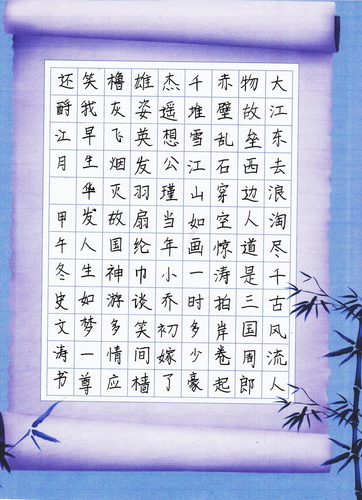 大江东去浪淘尽千古风流人
物故垒西边人道是三国周郎
赤壁乱石穿空惊涛拍岸卷起
千堆雪江山如画一时多少豪
杰遥想公瑾当年小乔初嫁了
雄姿英发羽扇纶巾谈笑间樯
橹灰飞烟灭故国神游多情应
笑我早生华发人生如梦一尊
还酹江月 甲午冬史文涛书